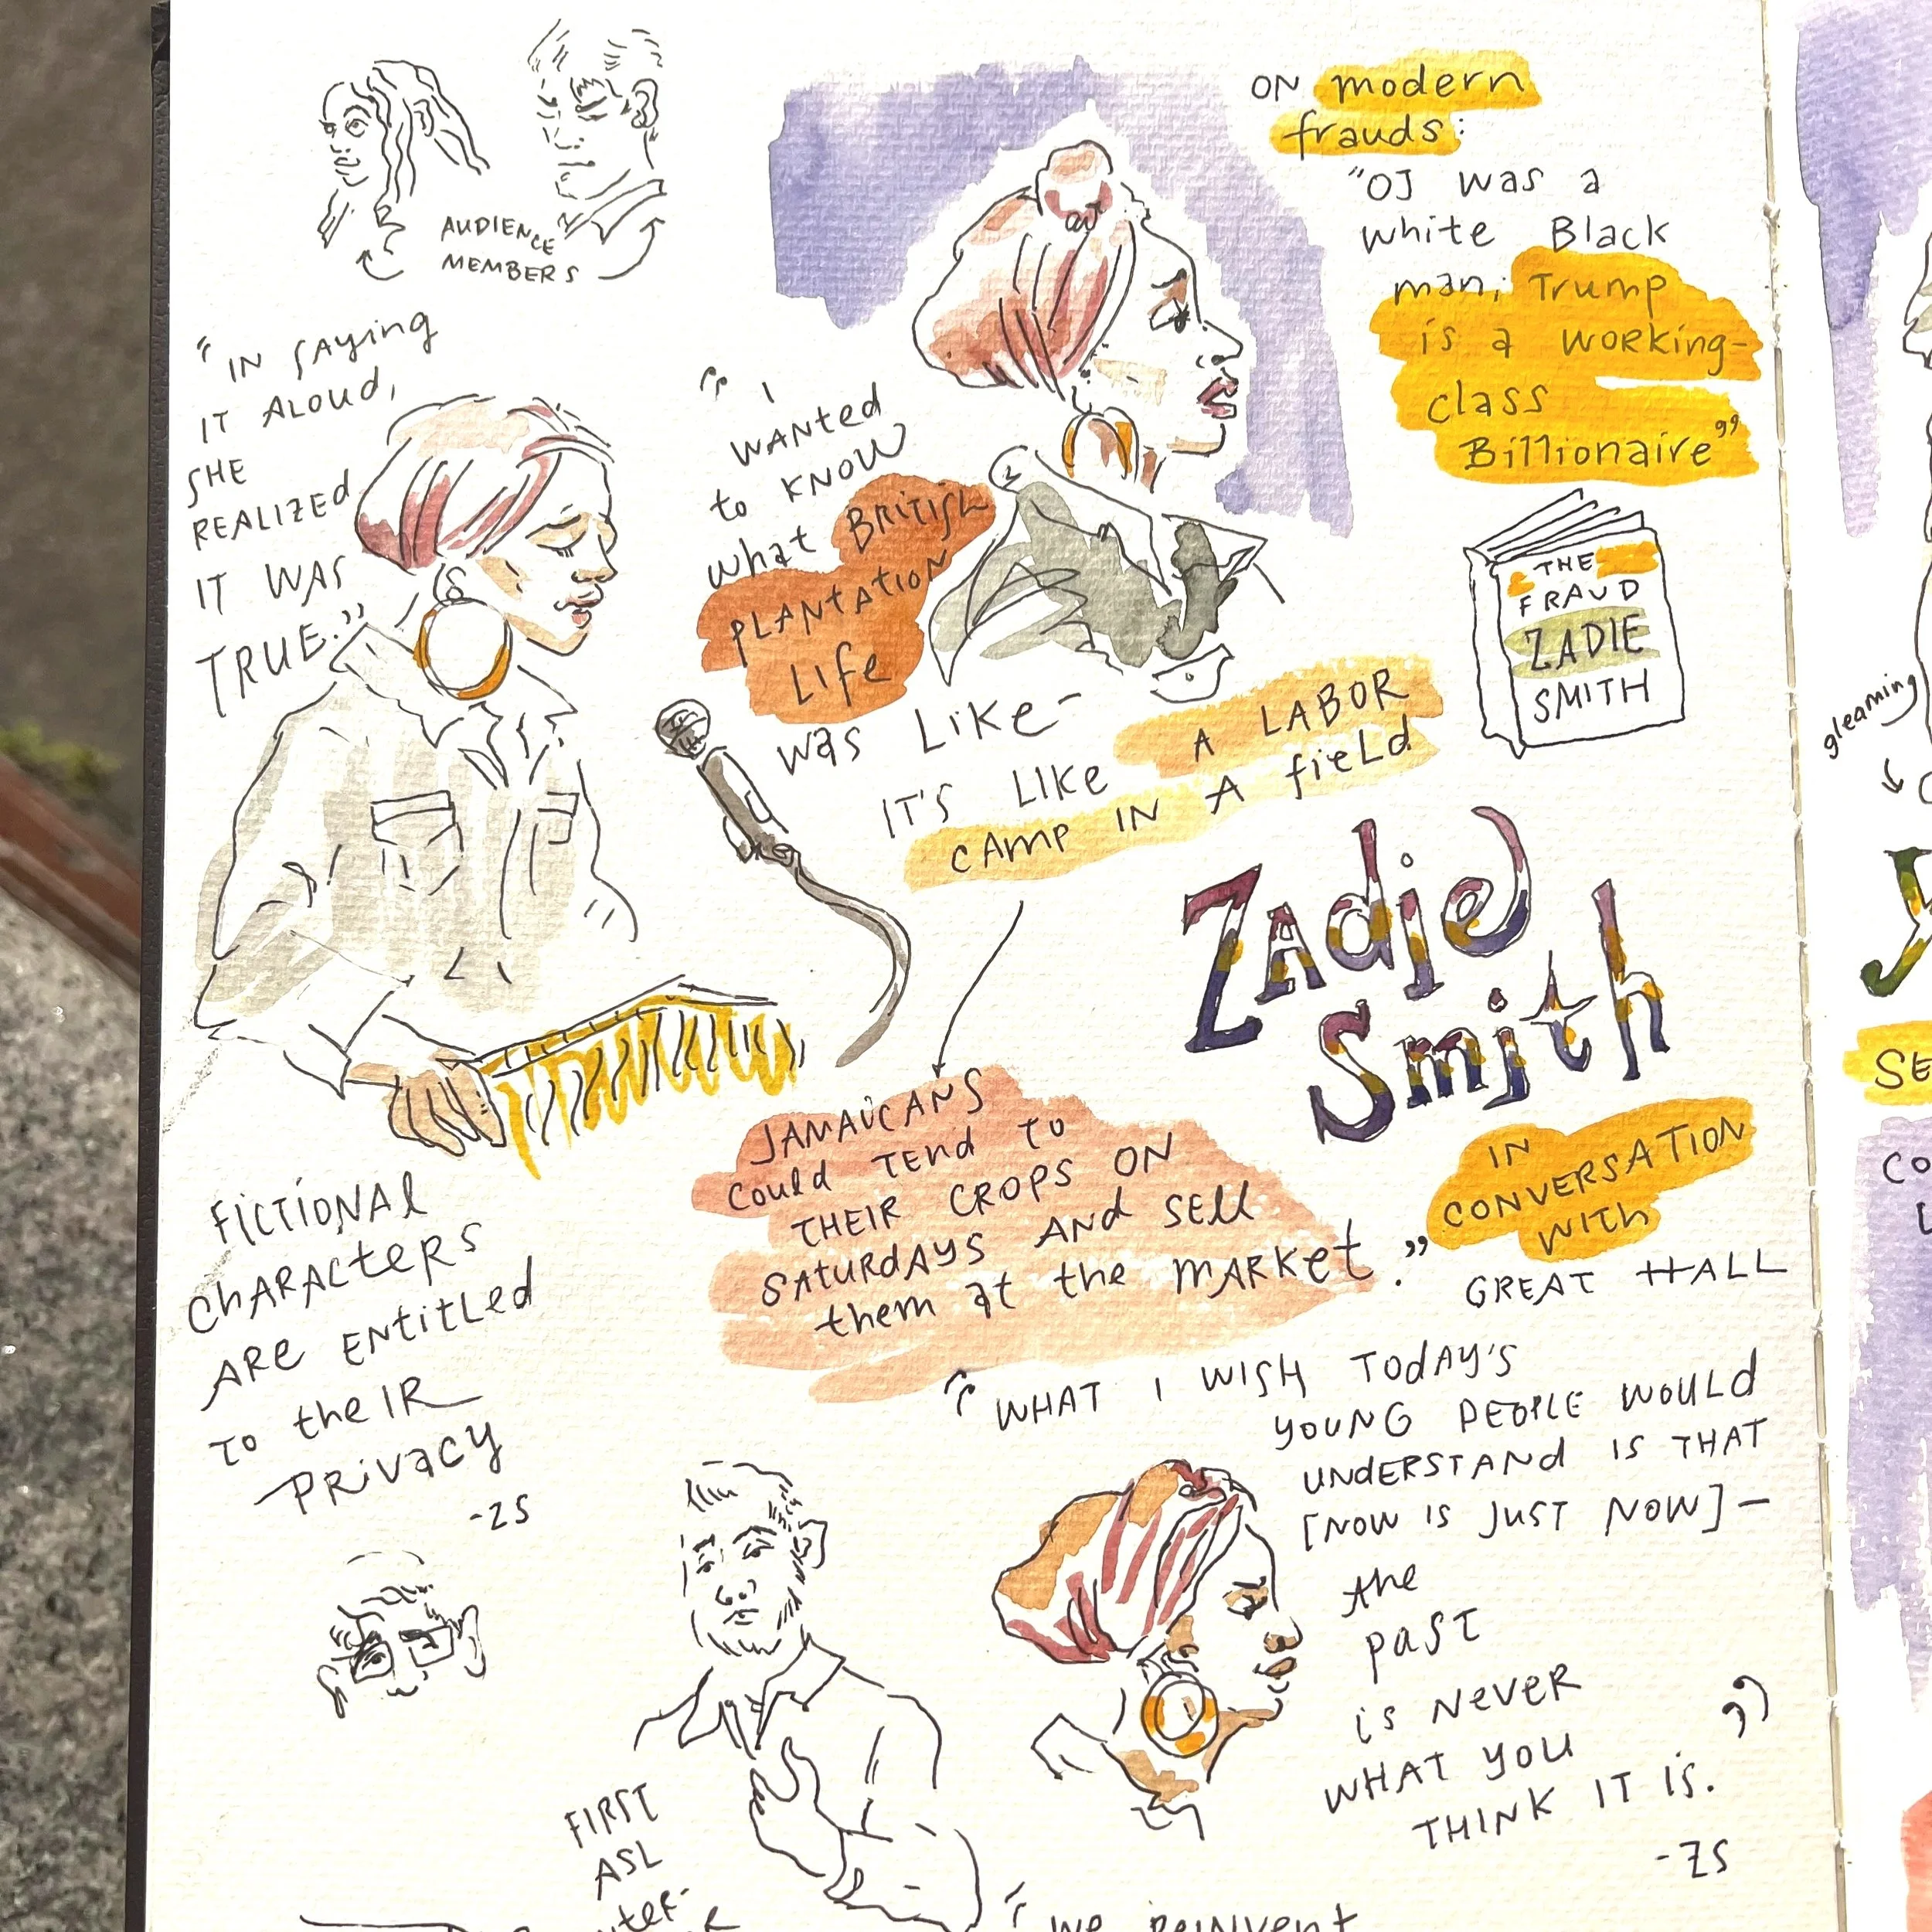 AUDIENCE
MEMBERS
ON modern
frauds:
"OJ was a
white Black
man; Trump
is a working-
class
Billionaire"
"IN SAying
IT ALOUD,
SHE
REALIZED
IT WAS
TRUE."
" I
WANTED
to KNOW
what BRITISH
PLANTATION
LIFE
was LIKE-
IT'S LIKE A LABOR
CAMP IN A fIELD
THE
FRAUD
ZADIE
SMITH
ZAdie
Smith
IN
CONVERSATION
WITH
GREAT HALL
JAMAiCANS
could TENd TO
THEIR CROPS ON
SATURdAYS ANd SEll
them at the MARKet."
FICTIONAl
CHARACTERS
ARE ENTITLEd
TO theIR
PRIVACY
-ZS
"WHAT I WISH TODAY'S
YOUNG PEOPLE WOULD
UNDERSTAND IS THAT
[NOW IS JUST NOW]-
the
past
is NEVER
WHAT YOU
THINK IT iS."
-ZS
FIRST
ASL
"WE REINVENT
gleaming
SE
CO